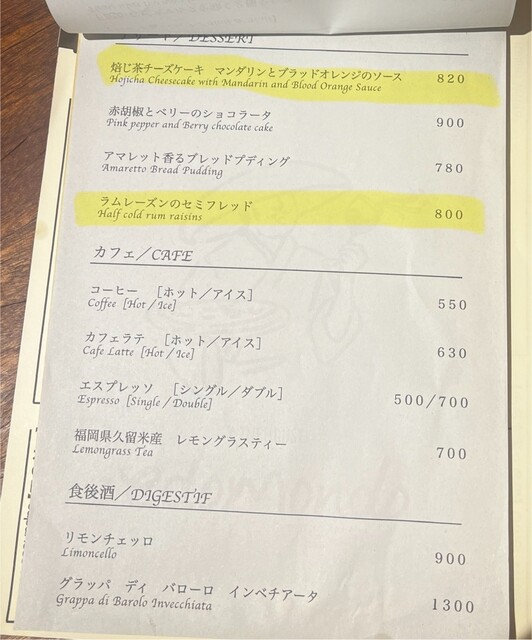 DESSERT
焙じ茶チーズケーキ　マンダリンとブラッドオレンジのソース 820
Hojicha Cheesecake with Mandarin and Blood Orange Sauce
赤胡椒とベリーのショコラータ 900
Pink pepper and Berry chocolate cake
アマレット香るブレッドプディング 780
Amaretto Bread Pudding
ラムレーズンのセミフレッド 800
Half cold rum raisins
カフェ／CAFE
コーヒー　［ホット／アイス］ 550
Coffee [Hot／Ice]
カフェラテ　［ホット／アイス］ 630
Cafe Latte [Hot／Ice]
エスプレッソ　［シングル／ダブル］ 500/700
Espresso [Single／Double]
福岡県久留米産　レモングラスティー 700
Lemongrass Tea
食後酒／DIGESTIF
リモンチェッロ 900
Limoncello
グラッパ　ディ　バローロ　インベチアータ 1300
Grappa di Barolo Invecchiata